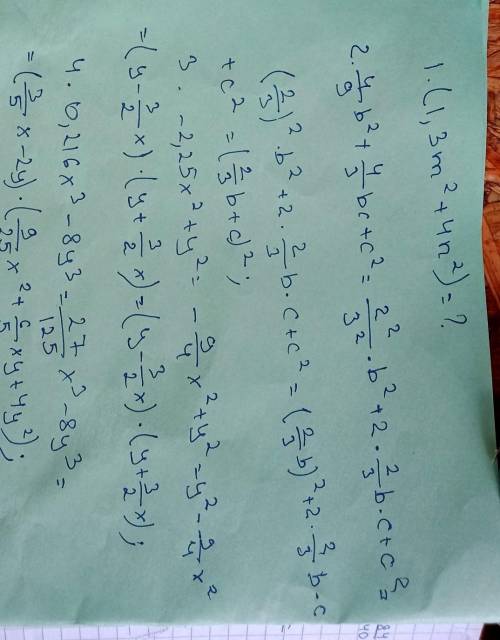 1. (1,3m² + 4n²) = ?
2. 4/9 b² + 4/3 bc + c² = 2²/3² · b² + 2 · 2/3 b · c + c² =
(2/3)² · b² + 2 · 2/3 b · c + c² = (2/3 b)² + 2 · 2/3 b · c
+ c² = (2/3 b + c)² ;
3. -2,25x² + y² = - 9/4 x² + y² = y² - 9/4 x²
= (y - 3/2 x) · (y + 3/2 x) = (y - 3/2 x) · (y + 3/2 x) ;
4. 0,216x³ - 8y³ = 27/125 x³ - 8y³ =
= (3/5 x - 2y) · (9/25 x² + 6/5 xy + 4y²) ;